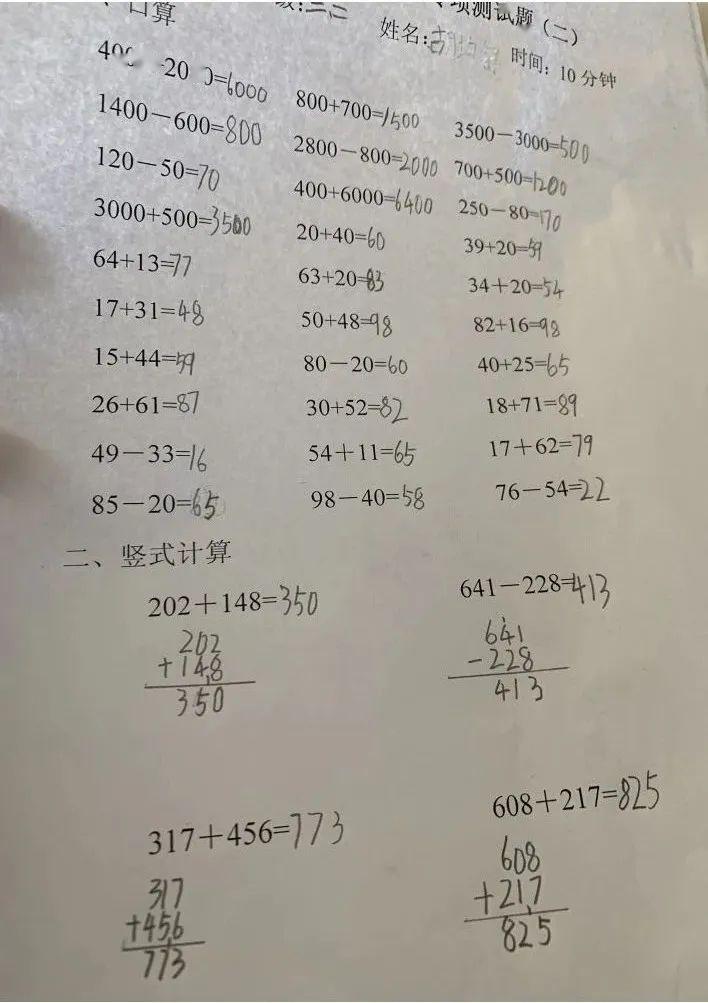 口算
级:三、二
项测试题（二）
姓名:
时间：10 分钟
=6000 800+700=1500 3500－3000=500
1400－600=800 2800－800=2000 700+500=1200
120－50=70 400+6000=6400 250－80=170
3000+500=3500 20+40=60 39+20=59
64+13=77 63+20=83 34+20=54
17+31=48 50+48=98 82+16=98
15+44=59 80－20=60 40+25=65
26+61=87 30+52=82 18+71=89
49－33=16 54+11=65 17+62=79
85－20=65 98－40=58 76－54=22
二、竖式计算
202＋148=350 641－228=413
202 641
+148 -228
350 413
317＋456=773 608＋217=825
317 608
+456 +217
773 825